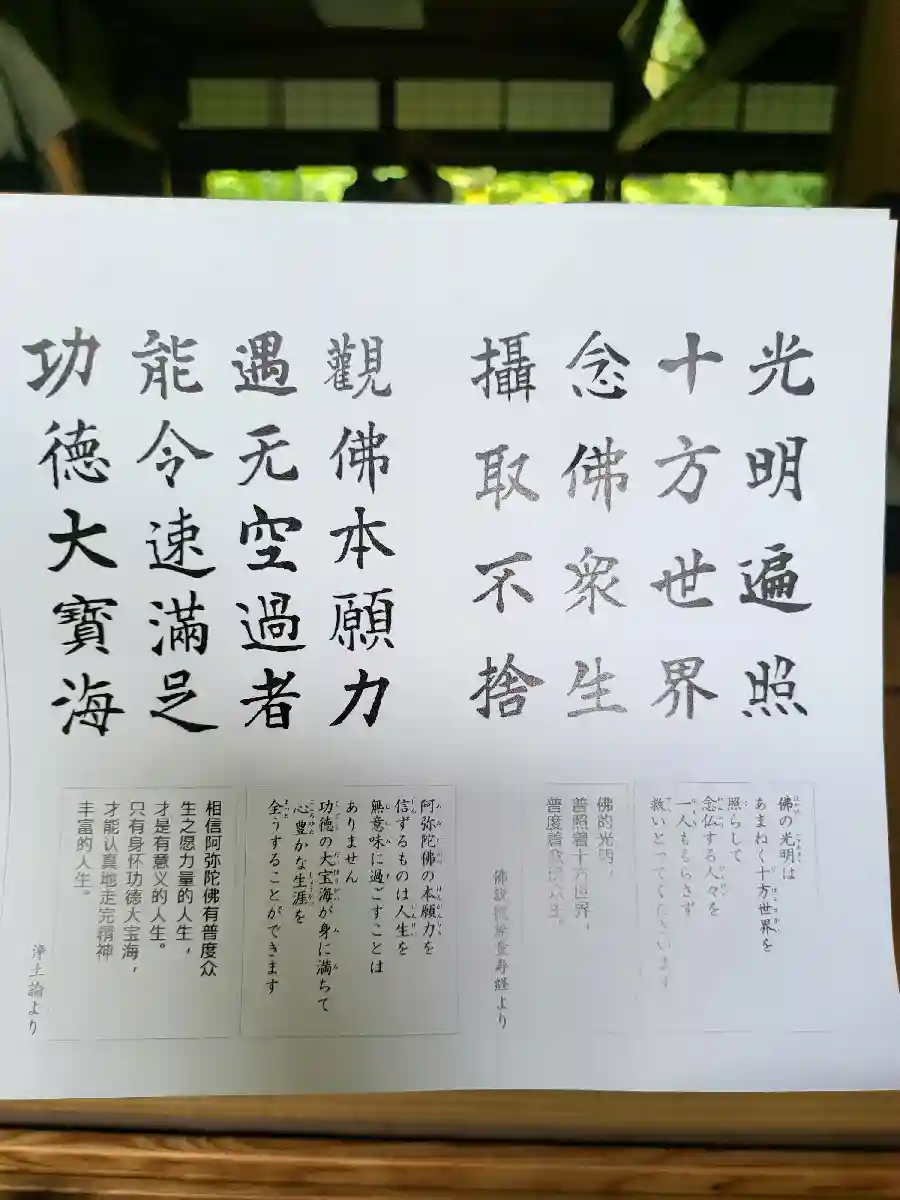 光明遍照
十方世界
念佛衆生
攝取不捨
觀佛本願力
遇无空過者
能令速滿足
功德大寶海
佛の光明は
あまねく十方世界を
照らして
念仏する人々を
一人ももらさず
救いとってくださいます
佛的光明，
普照着十方世界，
普度着念佛众生。
佛説観無量寿経より
阿弥陀佛の本願力を
信ずるものは人生を
無意味に過ごすことは
ありません
功徳の大宝海が身に満ちて
心豊かな生涯を
全うすることができます
相信阿弥陀佛有普度众
生之愿力量的人生，
才是有意义的人生。
只有身怀功德大宝海，
才能认真地走完精神
丰富的人生。
浄土論より